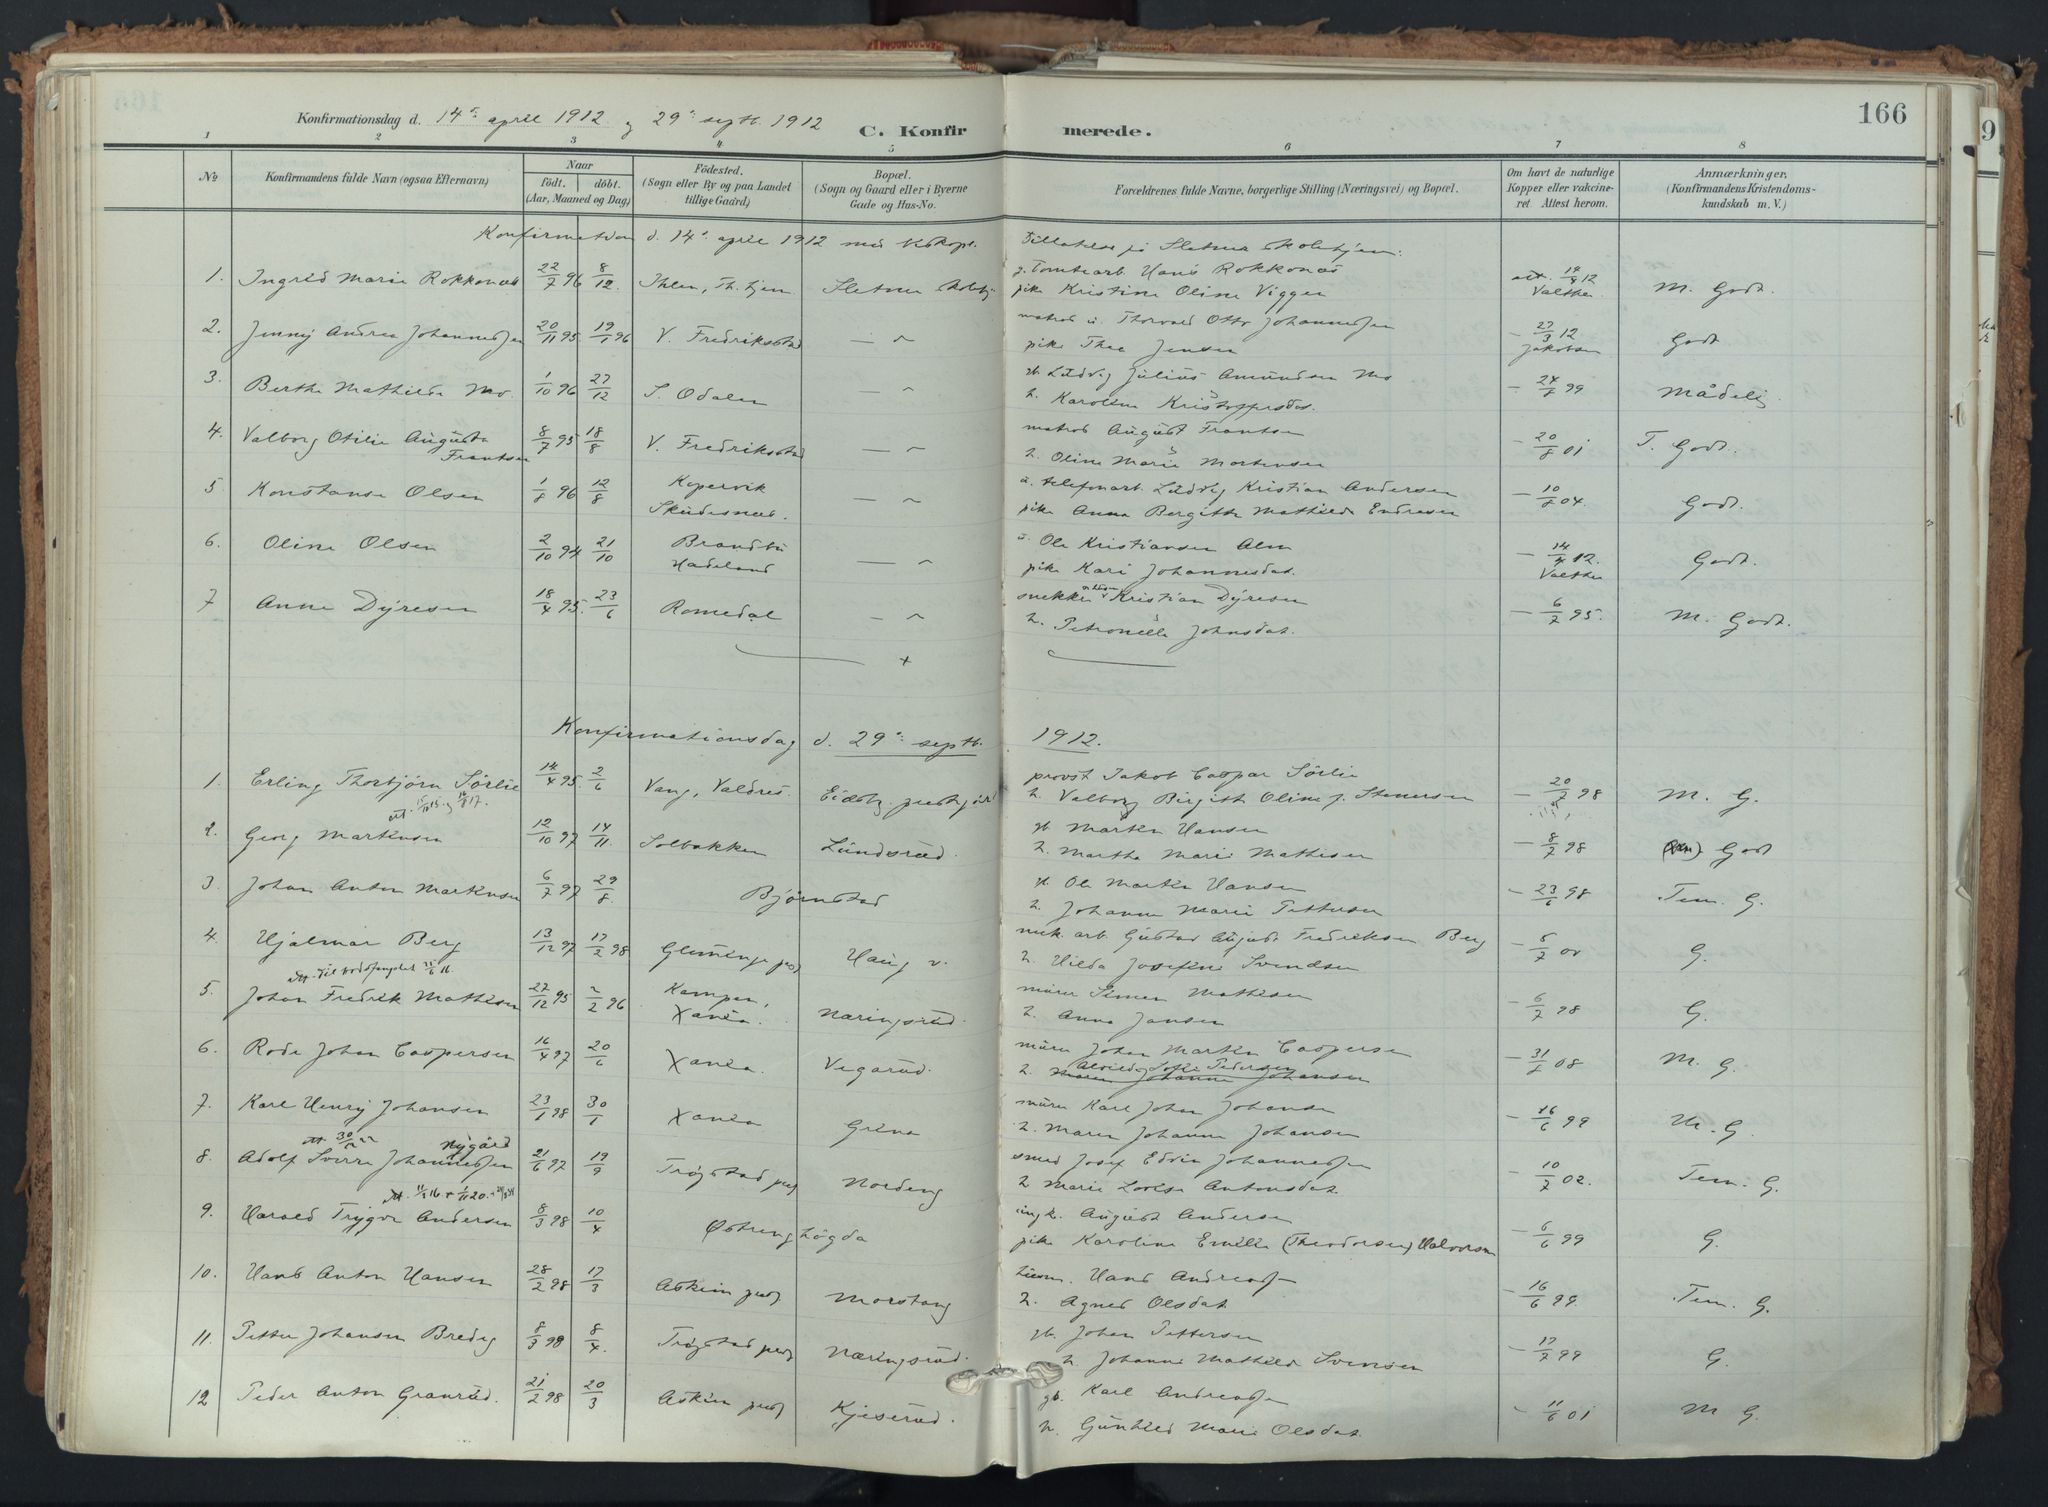 166
Konfirmationsdag d. 14de april 1912 og 29de septb. 1912
C. Konfirmerede.
1 2 3 4 5 6 7 8
No
Konfirmandens fulde Navn (ogsaa Efternavn)
Naar
födt. döbt.
(Aar, Maaned og Dag)
Födested.
(Sogn eller By og paa Landet
tillige Gaard)
Bopæl.
(Sogn og Gaard eller i Byerne
Gade og Hus-No.
Forældrenes fulde Navne, borgerlige Stilling (Næringsvei) og Bopæl.
Om havt de naturlige
Kopper eller vakcine-
ret. Attest herom.
Anmærkninger,
(Konfirmandens Kristendoms-
kundskab m. V.)
Konfirmation d. 14de april 1912 med biskopl. Tilladelse på Sletner skolehjem.
1. Ingrid Marie Rokkonæs 22/7 96 8/12. Ihlen, Th.hjem Sletner skolehj.
Tomtearb. Hans Rokkonæs
pike Kristine Oline Viggen
att. 14/4 12 Valther. M. Godt.
2. Jenny Andrea Johannessen 20/11 95. 19/1 96 V. Fredrikstad — "
matros u. Thorvald Otto Johannessen
pike Thea Jensen
— 27/3 12 Jakobsen Godt
3. Berthe Mathilde Mo. 1/10 96 27/12 S. Odalen — "
gb. Ludvig Julius Amundsen Mo
h. Karoline Kristoffersdat.
— 24/8 99 Mådelig
4. Valborg Otilie Augusta Frantsen 8/7 95 18/8 V. Fredrikstad — "
matros August Frantsen
h. Oline Marie Mortensen
— 20/8 01 T. Godt.
5 Konstanse Olsen 1/8 96 12/8 Kopervik Skudesnæs. — "
u. telefonarb. Ludvig Kristian Andersen
pike Anna Bergitte Mathilde Endresen
— 10/8 04. Godt.
6. Oline Olsen 2/10 94 21/10 Brandbu Hadeland — "
u. Ole Kristiansen Alm
pike Kari Johannesdat.
— 14/4 12. Valther Godt.
7 Anne Dyresen 18/4 95. 23/6 Romedal — "
snekker Kristian Dyresen
h. Petronelle Johnsdat.
— 6/7 95. M. Godt.
Konfirmationsdag d. 29de septb. 1912.
1. Erling Thorbjørn Sørlie 14/4 95. 2/6 Vang, Valdres. Eidsb. prestgård
provst Jakob Caspar Sørlie
h. Valborg Birgitte Oline f. Stenersen
— 20/7 98 M. G.
2. Georg Martinsen 12/10 97 14/11. Solbakken Lundsrud.
gb. Martin Hansen
h. Marthe Marie Mathisen
— 8/7 98 Godt
3. Johan Anton Martinsen 6/7 97 29/8. Bjørnstad
gb. Ole Martin Hansen
h. Johanne Marie Pettersen
— 23/6 98 Tem. G.
4. Hjalmar Berg 13/12 97 17/2 98 Glemminge prestgj Haug v.
mek. arb. Gustav August Fredriksen Berg
h. Hilda Josefine Svendsen
— 8/7 00 G.
5. Johan Fredrik Mathisen 27/12 95 2/2 96 Kampen, Xania. Næringsrud.
murer Simen Mathisen
h. Anna Jansen
— 6/7 98 G.
6. Rode Johan Caspersen 16/4 97 20/6 Xania. Vegarud.
murer Johan Martin Caspersen
Alvilde Sofie Pedersen
h. Maren Johanne Johansen
— 31/8 08 M. G.
7. Karl Henry Johansen 23/1 98 30/1 Xania Grina
murer Karl Johan Johansen
h. Maren Johanne Johansen
— 16/6 99 M. G.
att 30/12 22 Nygård
8. Adolf Sverre Johannessen 21/6 97 19/9 Trøgstad prgj Nordeng
smed Josef Edvin Johannessen
h Marie Lovise Antonsdat.
— 10/7 02. Tem. G.
9. Harald Trygve Andersen 8/3 98 10/4 Østeng Løgda
ungk. August Andersen
pike Karoline Emilie (Theodorsen) Halvorsen
— 6/6 99 G.
10. Hans Anton Hansen 28/2 98 17/3 Askim prgj Morstang
husm. Hans Andreassen
h. Agnes Olsdat.
— 16/6 99 Tem. G.
11. Petter Johansen Bredeg 8/3 98 8/4. Trøgstad prgj Næringsrud.
gb. Johan Pettersen
h. Johanne Mathilde Svensen
— 17/7 99 G.
12 Peder Anton Granrud. 21/2 98 20/3 Askim prgj Kjeserud.
gb. Karl Andreassen
h. Gunhild Marie Olsdat.
— 11/6 01 M G.